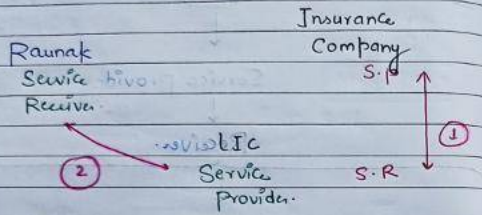 Insurance
Company
Raunak
S.P
Service
Receiver.
①
LIC
②
Service
S.R
Provider.